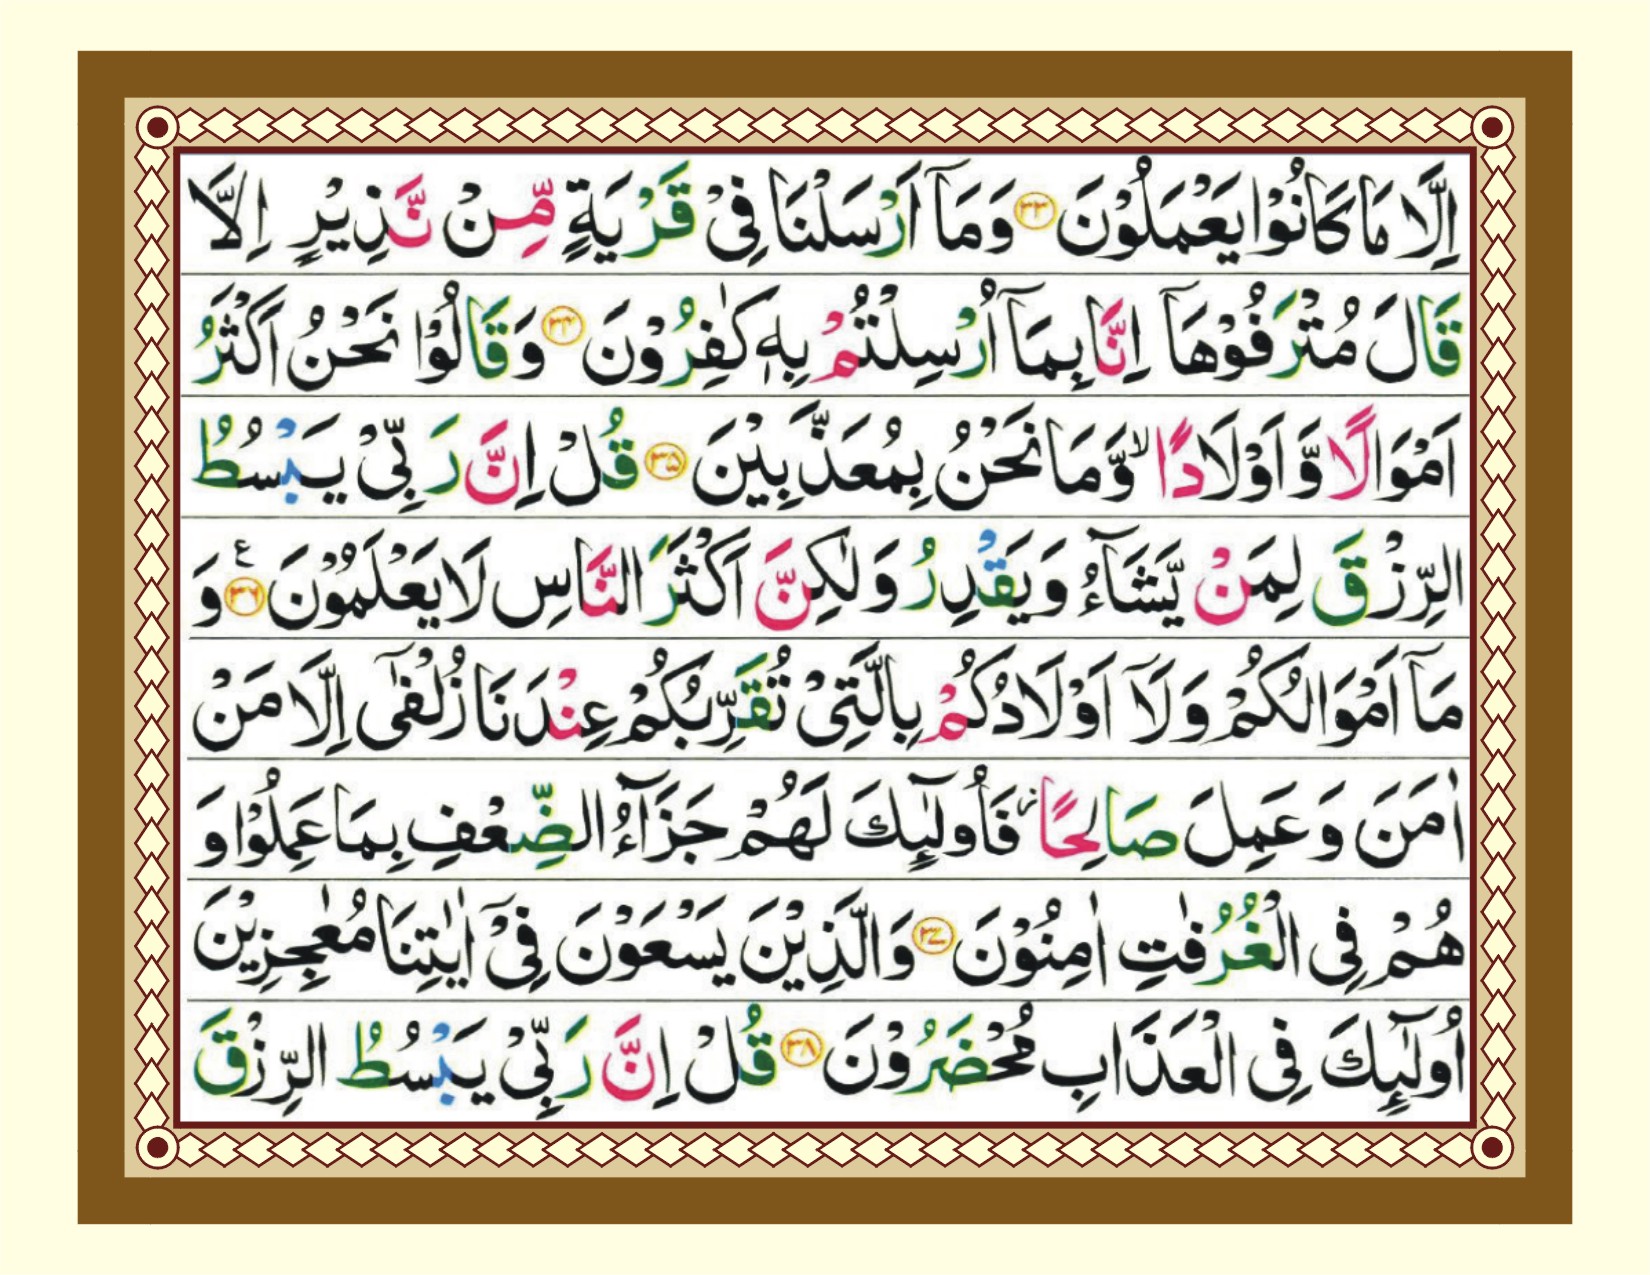 اِلَّا مَا كَانُوْا يَعْمَلُوْنَ ۳۳ وَمَاۤ اَرْسَلْنَا فِیْ قَرْیَةٍ مِّنْ نَّذِیْرٍ اِلَّا
قَالَ مُتْرَفُوْهَاۤ اِنَّا بِمَاۤ اُرْسِلْتُمْ بِهٖ كٰفِرُوْنَ ۳۴ وَقَالُوْا نَحْنُ اَكْثَرُ
اَمْوَالًا وَّاَوْلَادًا ۙ وَّمَا نَحْنُ بِمُعَذَّبِیْنَ ۳۵ قُلْ اِنَّ رَبِّیْ یَبْسُطُ
الرِّزْقَ لِمَنْ یَّشَآءُ وَیَقْدِرُ وَلٰكِنَّ اَكْثَرَ النَّاسِ لَا یَعْلَمُوْنَ ۳۶ ع وَ
مَاۤ اَمْوَالُكُمْ وَلَاۤ اَوْلَادُكُمْ بِالَّتِیْ تُقَرِّبُكُمْ عِنْدَنَا زُلْفٰۤی اِلَّا مَنْ
اٰمَنَ وَعَمِلَ صَالِحًا ؗ فَاُولٰٓئِكَ لَهُمْ جَزَآءُ الضِّعْفِ بِمَا عَمِلُوْا وَ
هُمْ فِی الْغُرُفٰتِ اٰمِنُوْنَ ۳۷ وَالَّذِیْنَ یَسْعَوْنَ فِیْۤ اٰیٰتِنَا مُعٰجِزِیْنَ
اُولٰٓئِكَ فِی الْعَذَابِ مُحْضَرُوْنَ ۳۸ قُلْ اِنَّ رَبِّیْ یَبْسُطُ الرِّزْقَ